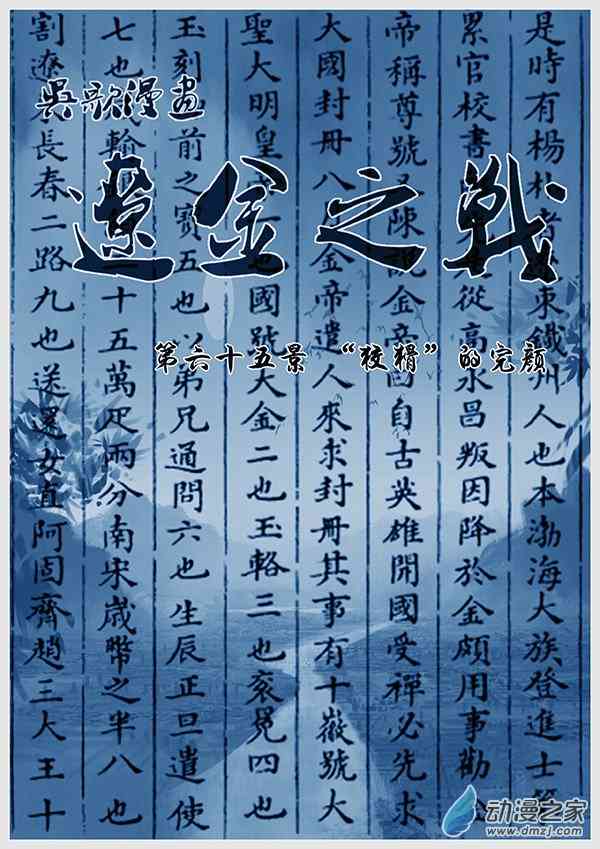 吳歌漫畫
遼金之戰
第六十五景 “狡猾”的完顏
是時有楊朴者東鐵州人也本渤海大族登進士
累官校書從高永昌叛因降於金頗用事勸
帝稱尊號又陳說金帝曰自古英雄開國受禪必先求
大國封冊八月金帝遣人來求封冊其事有十徽號大
聖大明皇一也國號大金二也玉輅三也袞冕四也
玉刻前之寶五也以弟兄通問六也生辰正旦遣使
七也輸二十五萬疋兩分南宋歲幣之半八也
割遼長春二路九也送還女直阿固齊趙三大王十
动漫之家
www.dmzj.com